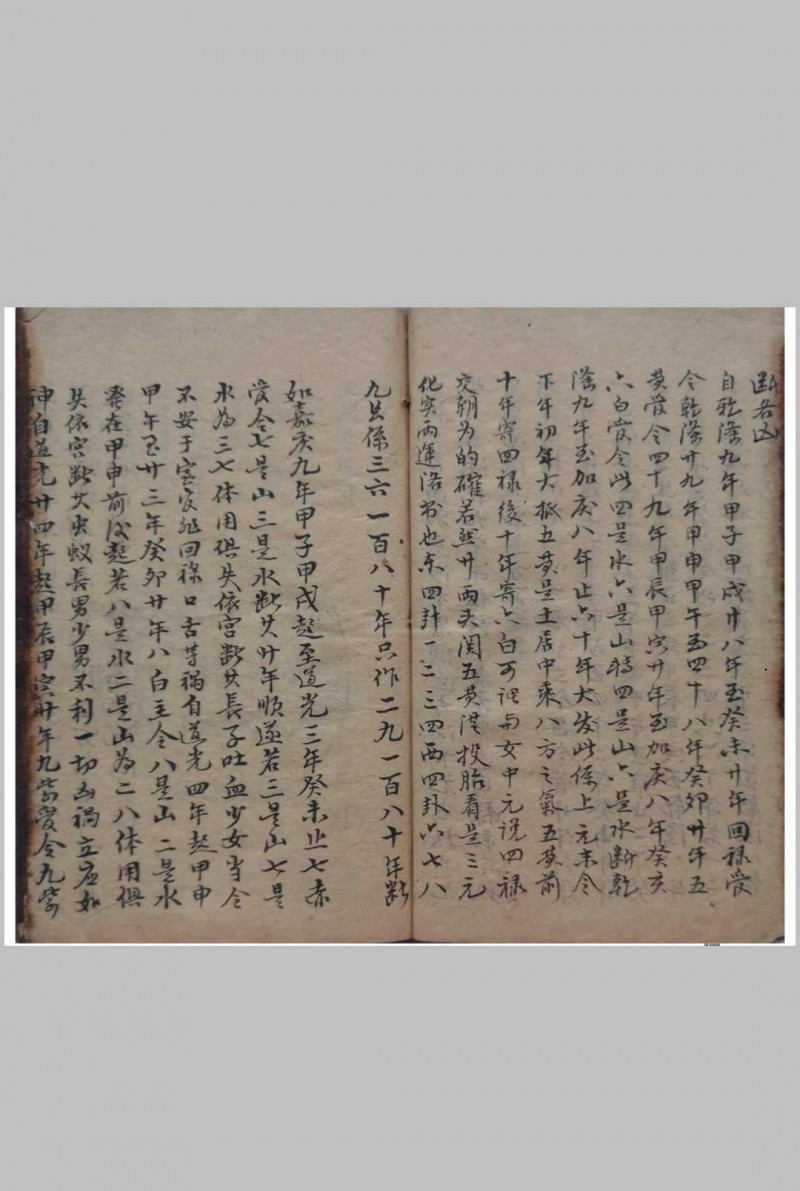 断吉凶
自乾隆九年甲子甲戌廿八年至癸未廿年四禄管
令乾隆廿九年甲申甲午至四十八年癸卯廿年五
黄管令四十九年甲辰甲寅廿年至加庆八年癸亥
六白管令此四是水六是山转四是山六是水断乾
隆九年至加庆八年止六十年大发此係上元末令
下年初年大抵五黄是土居中乘八方之氣五黄前
十年寄四禄後十年寄六白可谓与女中元说四禄
交朝为的確若然廿两头関五黄混投胎看是三元
化实两運洛书也东四卦一二三四西四卦六七八
九共係三六一百八十年只作二九一百八十年断
如嘉庆九年甲子甲戌起至道光三年癸未止七赤
管令七是山三是水断廿年順遂若三是山七是
水为三七体用俱失依宫断其長子吐血少女当令
不安于室家雞回禄口舌等禍自道光四年起甲申
甲午至廿三年癸卯廿年八白主令八是山二是水
發在甲申前後起若八是水二是山为二八体用俱
失依宫断其虫蚁長男少男不利一切凶禍立应如
神自道光廿四年起甲辰甲寅廿年九紫管令九紫